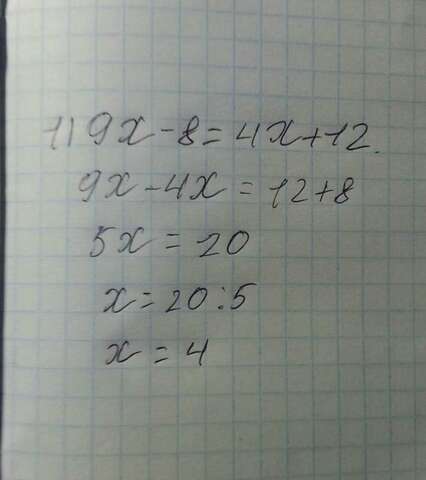 1) 9x-8=4x+12.
9x-4x=12+8
5x=20
x=20:5
x=4